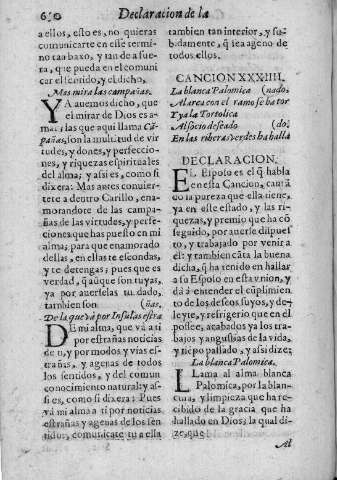 650
Declaracion de la
a ellos, esto es, no quieras
comunicarte en este termi-
no tan baxo, y tan de a fue-
ra, que pueda en el comuni
car el sentido, y el dicho,
Mas mira las campañas.
YA auemos dicho, que
el mirar de Dios es a-
mar; las que aqui llama Cã-
pañas, son la multitud de vir
tudes, y dones, y perfeccio-
nes, y riquezas espirituales
del alma; y assi es, como si
dixera: Mas antes conuier-
te a dentro Carillo, ena-
morandore de las campa-
ñas de las virtudes, y perfe-
ciones que has puesto en mi
alma; para que enamorado
dellas, en ellas te escondas,
y te detengas; pues que es
verdad, q̃ aũque son tuyas,
ya por auerselas tu dado,
tambien son (ñas.
De la que vá por Insulas estra
DE mi alma, que vá a ti
por estrañas noticias
de ti, y por modos y vias es-
trañas, y agenas de todos
los sentidos, y del comun
conocimiento natural: y as-
si es, como si dixera: Pues
vá mi alma a ti por noticias
estrañas y agenas de los sen
tidos, comunicate tu a ella
tambien tan interior, y su-
bidamente, q̃ sea ageno de
todos ellos.
CANCION XXXIIII.
La blanca Palomica (nado.
Al arca con el ramo se ha tor
Y ya la Tortolica
Al socio deseado (do.
En las riberas verdes ha halla
DECLARACION.
EL Esposo es el q̃ habla
en esta Cancion, cantã
do la pureza que ella tiene,
ya en este estado, y las ri-
quezas, y premio que ha cõ
seguido, por auerse dispues
to, y trabajado por venir a
èl: y tambien cãta la buena
dicha, q̃ ha tenido en hallar
a su Esposo en esta vnion, y
dá á entender el cũplimien
to de los deseos suyos, y de-
leyte, y refrigerio que en el
posee, acabados ya los tra-
bajos, y angustias de la vida,
y tiẽpo passado, y assi dize:
La blanca Palomica.
LLama al alma blanca
Palomica, por la blan-
cura, y limpieza que ha re-
cibido de la gracia que ha
hallado en Dios; la qual di-
ze, que
Al